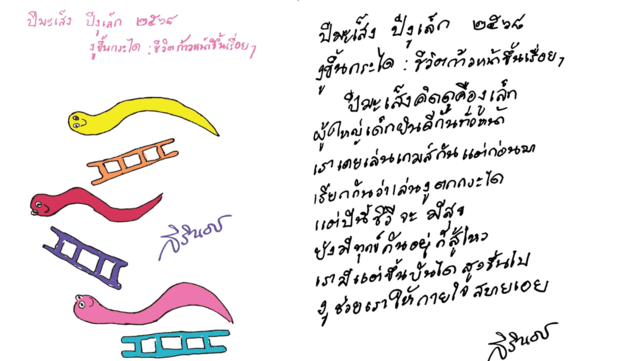 ปีมะเส็ง ปีงูเล็ก ๒๕๖๘
งูขึ้นกระได : ชีวิตก้าวหน้าขึ้นเรื่อยๆ
สิรินธร
ปีมะเส็ง ปีงูเล็ก ๒๕๖๘
งูขึ้นกระได : ชีวิตก้าวหน้าขึ้นเรื่อยๆ
ปีมะเส็งคิดดูคืองูเล็ก
ผู้ใหญ่เด็กยินดีกันทั่วหน้า
เราเคยเล่นเกมส์กันแต่ก่อนมา
เรียกกันว่าเล่นงูตกกระได
แต่ปีนี้ชีวีจะมีสุข
ยังมีทุกข์กันอยู่ก็สู้ไหว
เรามีแต่ขึ้นบันไดสูงขึ้นไป
งูช่วยเราให้กายใจสบายเอย
สิรินธร